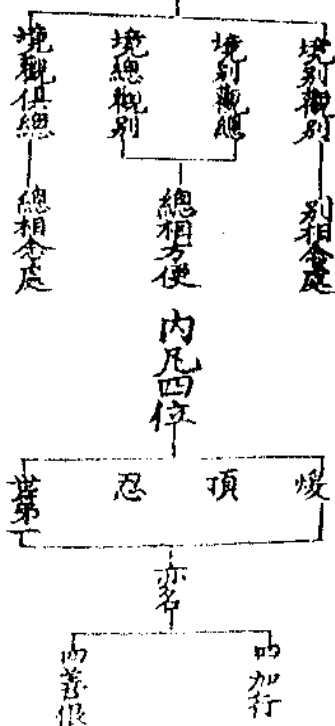 境別觀別
境別觀總
境總觀別
境觀俱總
別相念處
總相方便
總相念處
內凡四位
煖
頂
忍
世第一
亦名
四加行
四善根